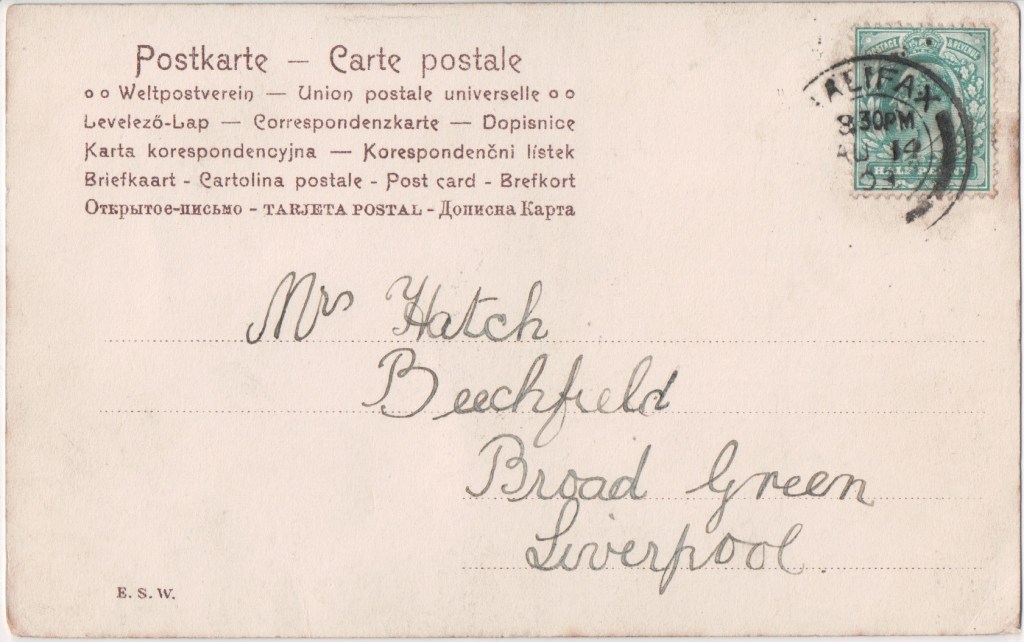 Postkarte – Carte postale
Weltpostverein — Union postale universelle
Levelező-Lap — Correspondenzkarte — Dopisnice
Karta korespondencyjna — Korespondenčni lístek
Briefkaart - Cartolina postale - Post card - Brefkort
Открытое-письмо - TARJETA POSTAL - Дописна Карта
POSTAGE & REVENUE
ALIFAX
8 30PM
AU 14
03
HALF PENNY
Mrs Hatch
Beechfield
Broad Green
Liverpool.
E. S. W.